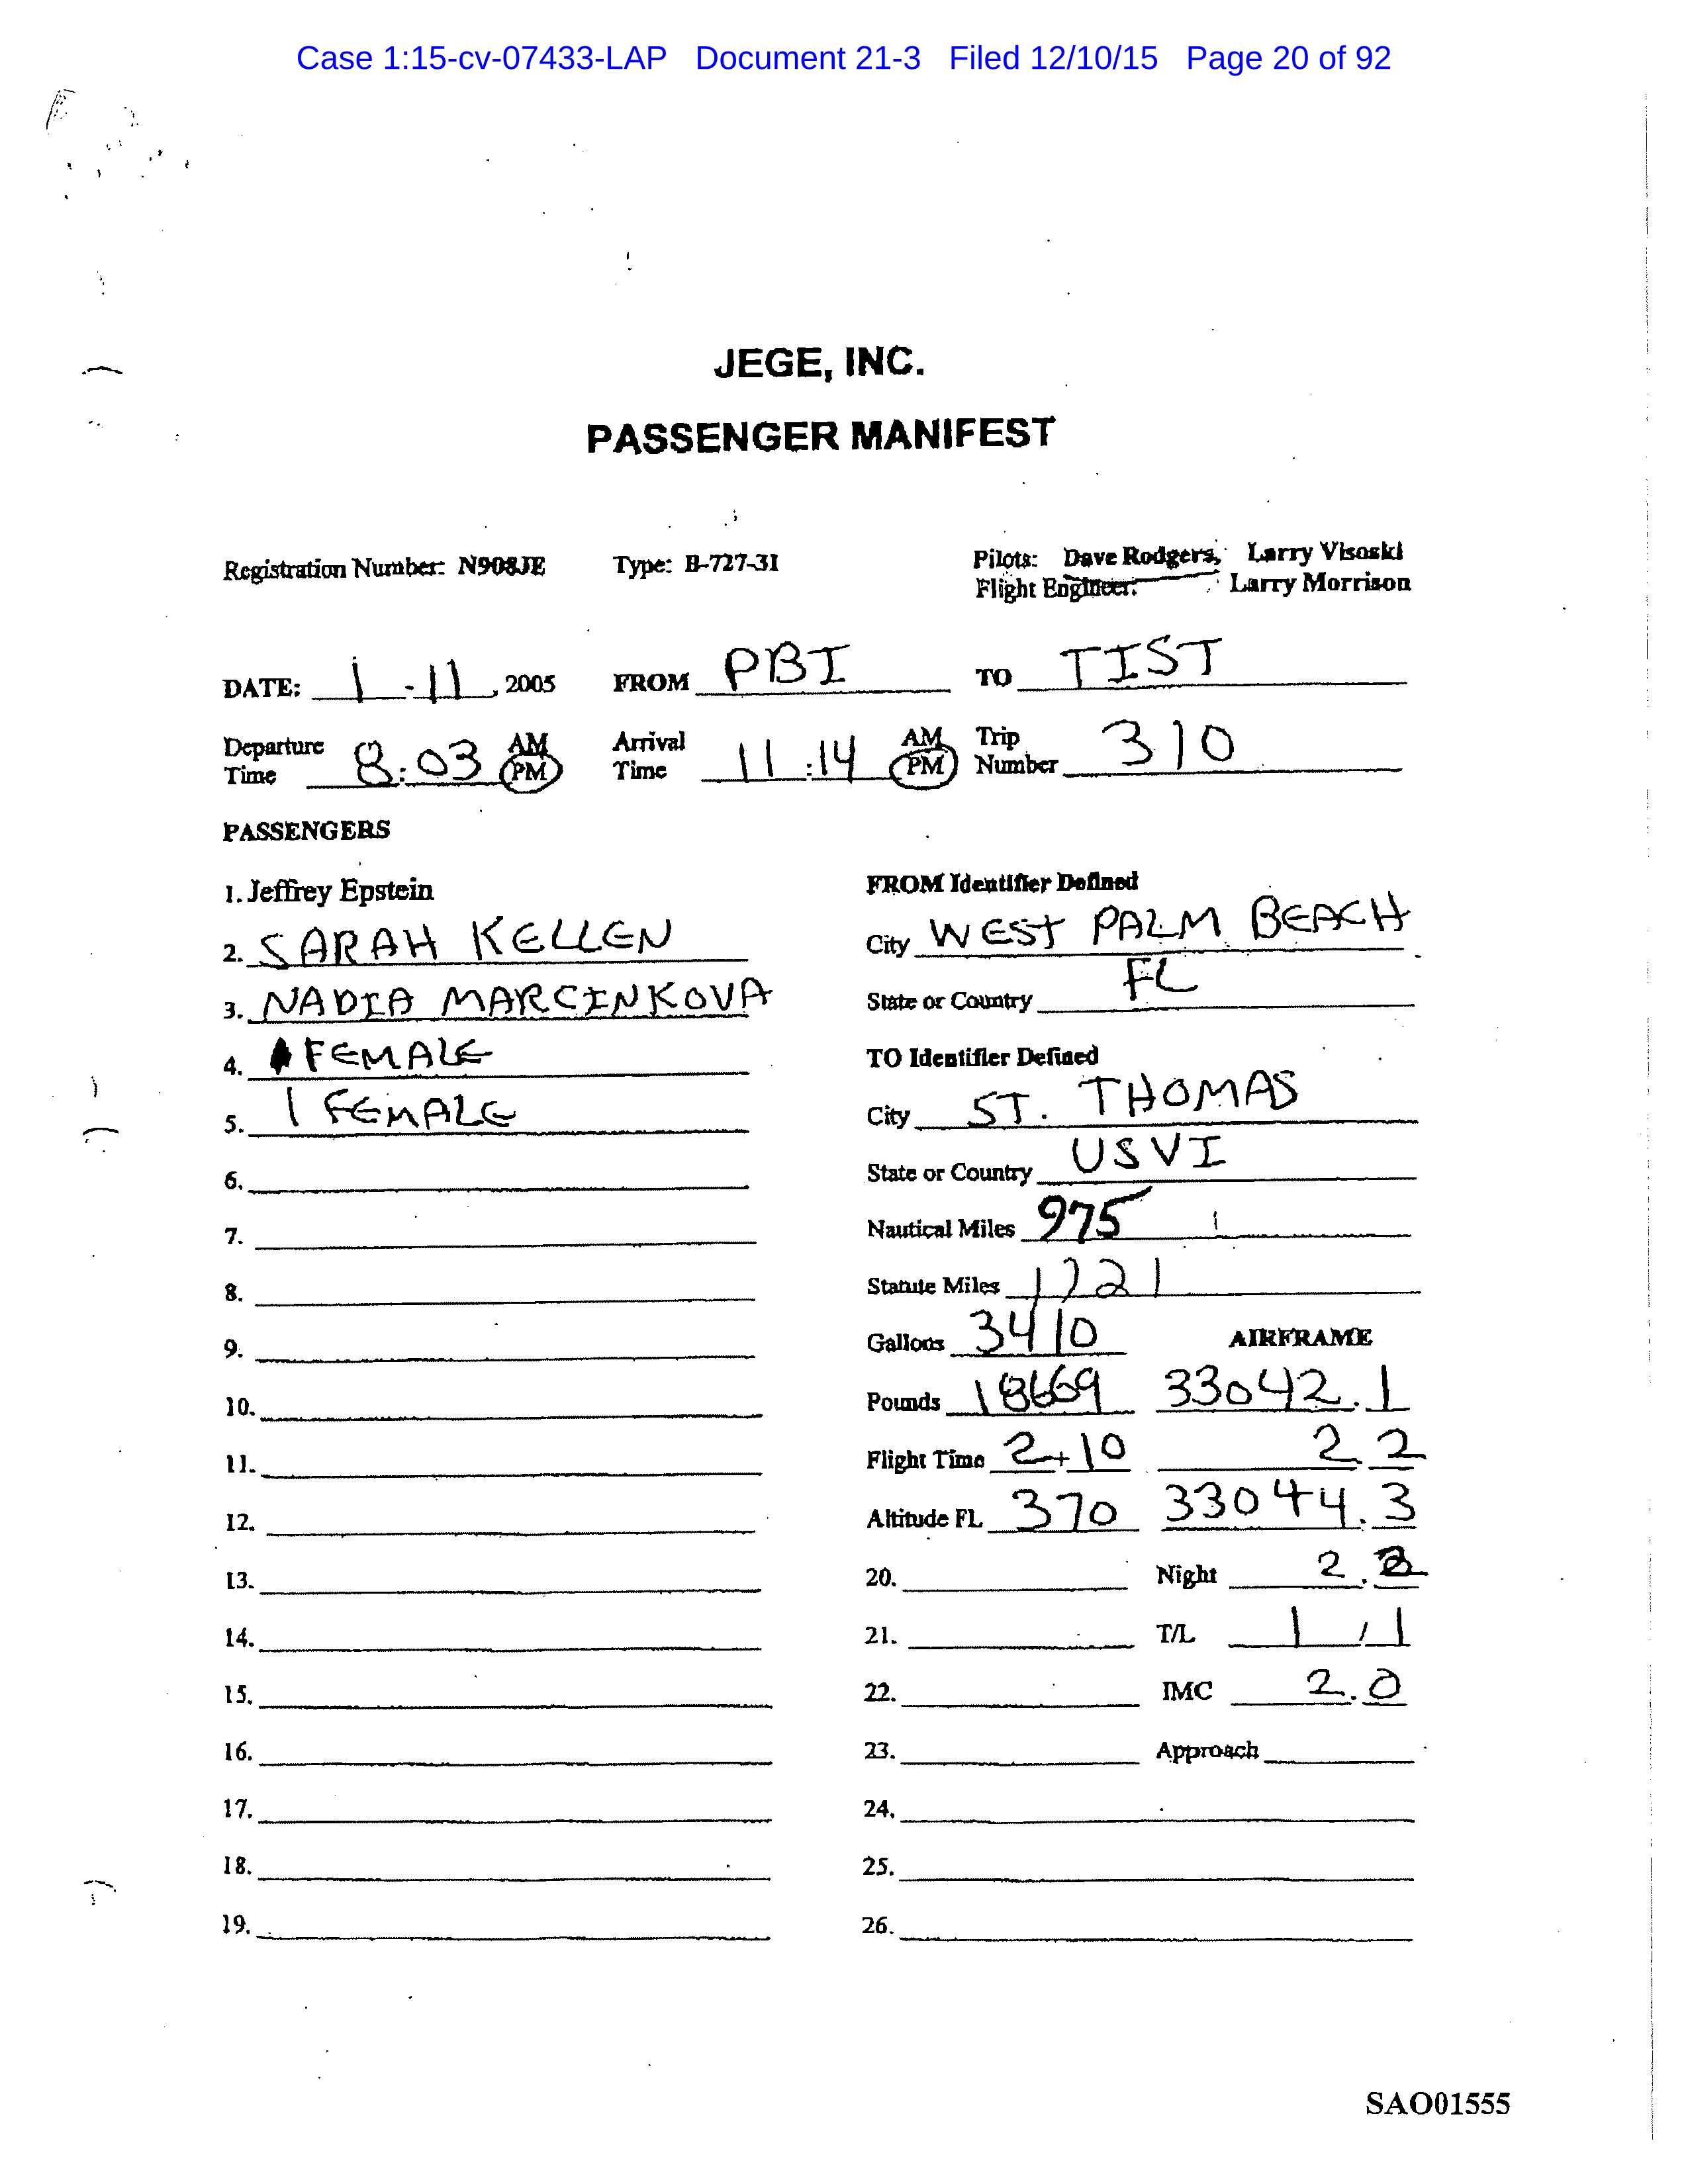 Case 1:15-cv-07433-LAP Document 21-3 Filed 12/10/15 Page 20 of 92
JEGE, INC.
PASSENGER MANIFEST
Registration Number: N908JE Type: B-727-31 Pilots: Dave Rodgers, Larry Visoski
Flight Engineer: Larry Morrison
DATE: 1-11, 2005 FROM PBI TO TIST
Departure Time 8:03 AM PM Arrival Time 11:14 AM PM Trip Number 310
PASSENGERS
1. Jeffrey Epstein
2. SARAH KELLEN
3. NADIA MARCINKOVA
4. FEMALE
5. 1 FEMALE
6.
7.
8.
9.
10.
11.
12.
13.
14.
15.
16.
17.
18.
19.
FROM Identifier Defined
City WEST PALM BEACH
State or Country FL
TO Identifier Defined
City ST. THOMAS
State or Country USVI
Nautical Miles 975
Statute Miles 1721
Gallons 3410 AIRFRAME
Pounds 18669 33042.1
Flight Time 2+10 2 2
Altitude FL 370 33044.3
20. Night 2.2
21. T/L 1 / 1
22. IMC 2.0
23. Approach
24.
25.
26.
SAO01555